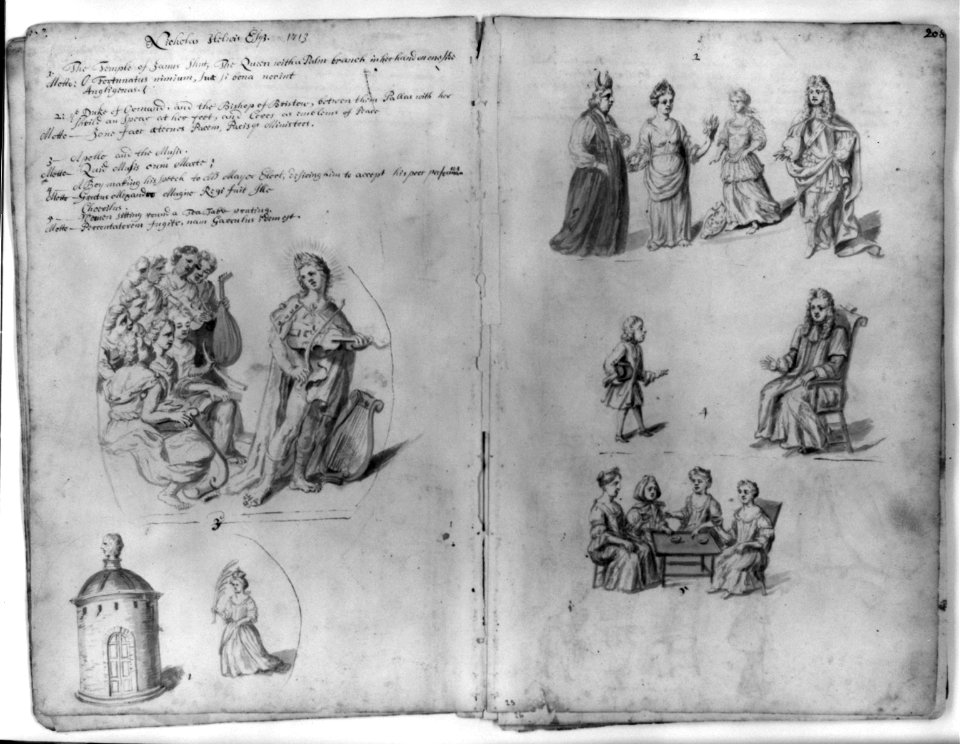 Nicholas Helwis Esqr. 1713
1. The Temple of Janus Shut, The Queen with a Palm branch in her hand on one side
Motto: O Fortunatus nimium, sua si bona norint
Angligenas.
2. ye Duke of Ormund, and the Bishop of Bristow, between them Pallas with her
Sheild an Spear at her feet, and Ceres as emblems of Peace
Motto — Jane fac æternos Pacem, Pacisq Ministros.
3 — Apollo and the Muses.
Motto — Quid Musis cum Marte?
4 A Boy making his speech to Ld Mayor Elect, desiring him to accept his poor performance
Motto — Gratus Alexandro Magno Regi fuit Ille
Choerilus.
5 — Women sitting round a Tea Table prating.
Motto — Percontatorem fugito, nam Garrulus Idem est.
3
1
208
2
4
5
25
26